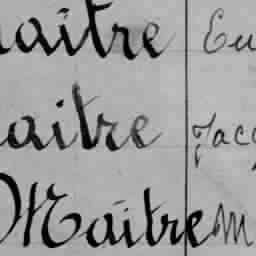 aître Eu
aitre Jacq
Maitre M